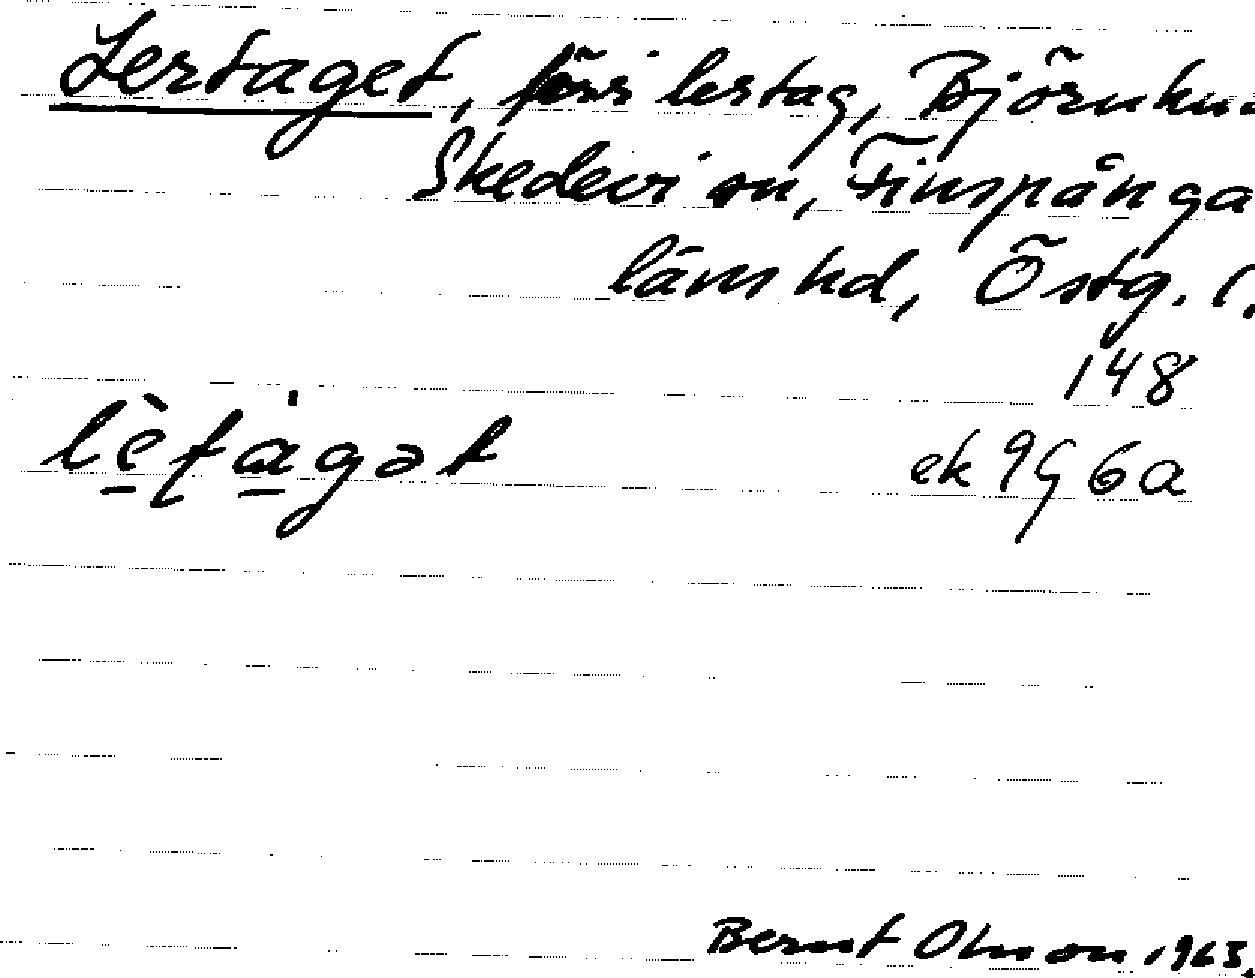 Lertaget, förr lertag, Björnhu
Skedevi sn, Finspånga
läns hd, Östg. l.
148
lètạ̀gət ek 9g 6a
Bernt Olsson 1963.